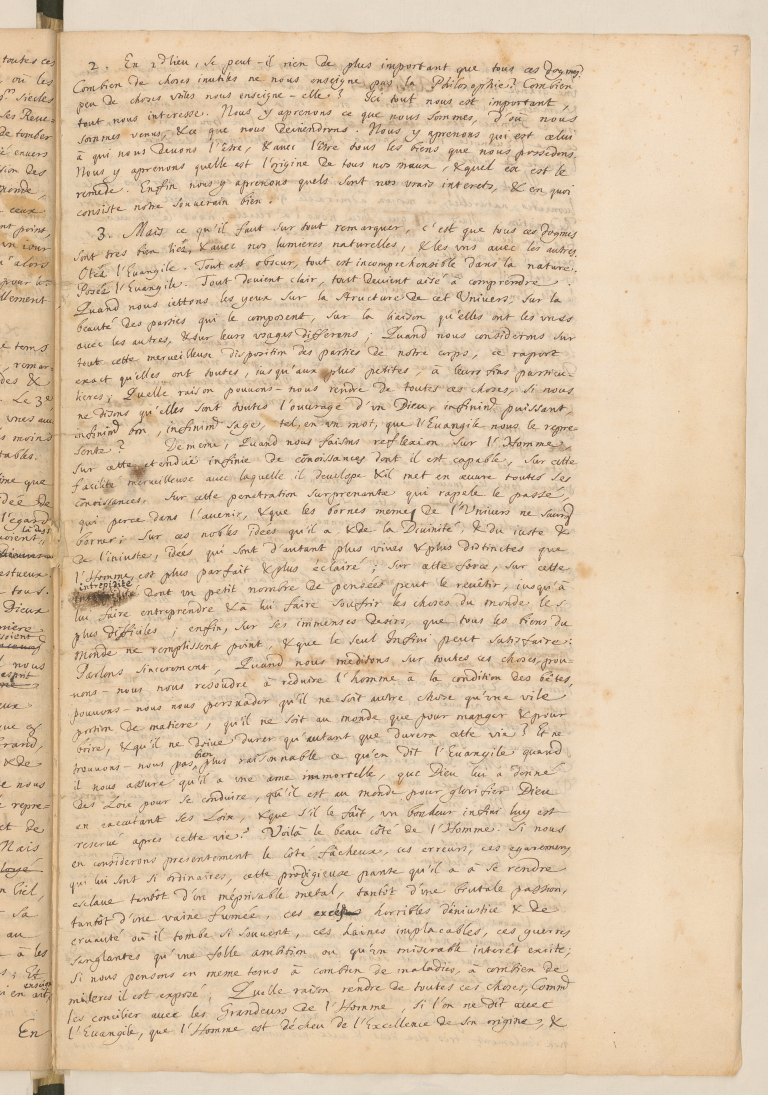 2. En 2d lieu, se peut-il rien de plus important que tous ces Dogmes
Combien de choses inutiles ne nous enseigne pas la Philosophie? Combien
peu de choses utiles nous enseigne-elle? Ici tout nous est important,
tout nous interesse. Nous y aprenons ce que nous sommes, d'où nous
sommes venus, & ce que nous deviendrons. Nous y aprenons qui est celui
à qui nous devons l'Etre, & avec l'Etre tous les biens que nous possedons.
Nous y aprenons quelle est l'origine de tous nos maux, & quel en est le
remède. Enfin nous y aprenons quels sont nos vrais interets, & en quoi
consiste notre souverain bien.
3. Mais ce qu'il faut sur tout remarquer, c'est que tous ces Dogmes
sont tres bien liéz, & avec nos lumieres naturelles, & les uns avec les autres.
Otéz l'Evangile. Tout est obscur, tout est incomprehensible dans la nature.
Poséz l'Evangile. Tout devient clair, tout devient aisé à comprendre
Quand nous iettons les yeux sur la structure de cet Univers, sur la
beauté des parties qui le composent, sur la liaison qu'elles ont les unes
avec les autres, & sur leurs usages differens; Quand nous considerons sur
tout cette merveilleuse disposition des parties de notre corps, ce raport
exact qu'elles ont toutes, iusqu'aux plus petites, à leurs fins particu-
lieres; Quelle raison pouvons-nous rendre de toutes ces choses, si nous
ne disons qu'elles sont toutes l'ouvrage d'un Dieu, infinimt puissant,
infinimt bon, infinimt sage, tel, en un mot, que l'Evangile nous le repre-
sente? De meme, Quand nous faisons reflexion sur l'Homme,
sur cette etenduë infinie de conoissances dont il est capable, sur cette
facilité merveilleuse avec laquelle il develope & il met en œuvre toutes ses
conoissances, sur cette penetration surprenante qui rapele le passé,
qui perce dans l'avenir, & que les bornes memes de l'Univers ne sauroit
borner; sur ces nobles idées qu'il a & de la Divinité, & du iuste &
de l'iniuste, idées qui sont d'autant plus vives & plus distinctes que
l'Homme est plus parfait & plus éclairé; sur cette force, sur cette
intrepidité
dont un petit nombre de pensées peut le revêtir, iusqu'à
lui faire entreprendre & à lui faire souffrir les choses du monde les
plus difficiles; enfin, sur ses immenses desirs, que tous les biens du
Monde ne remplissent point, & que le seul Infini peut satisfaire:
Parlons sincerement, Quand nous meditons sur toutes ces choses, pou-
vons-nous nous resoudre à réduire l'homme à la condition des bêtes,
pouvons-nous nous persuader qu'il ne soit autre chose qu'une vile
portion de matiere, qu'il ne soit au monde que pour manger & pour
boire, & qu'il ne doive durer qu'autant que durera cette vie? Et ne
bien
trouvons-nous pas plus raisonnable ce qu'en dit l'Evangile quand
il nous assure qu'il a une ame immortelle, que Dieu lui a donné
des Loix pour se conduire, qu'il est au monde pour glorifier Dieu
en executant ses Loix, & que s'il le fait, un bonheur infini luy est
reservé apres cette vie? Voilà le beau côté de l'Homme. Si nous
en considerons presentement le côté fâcheux, ces erreurs, ces egaremens
qui lui sont si ordinaires, cette prodigieuse pante qu'il a à se rendre
esclave tantôt d'un méprisable metal, tantôt d'une brutale passion,
tantôt d'une vaine fumée, ces excès horribles d'iniustice & de
cruauté où il tombe si souvent, ces haines implacables, ces guerres
sanglantes qu'une folle ambition ou qu'un miserable interêt excite;
si nous pensons en meme tems à combien de maladies, à combien de
miseres il est exposé; Quelle raison rendre de toutes ces choses, Commt
les concilier avec les Grandeurs de l'Homme, si l'on ne dit avec
l'Evangile, que l'Homme est déchu de l'Excellence de son origine, &